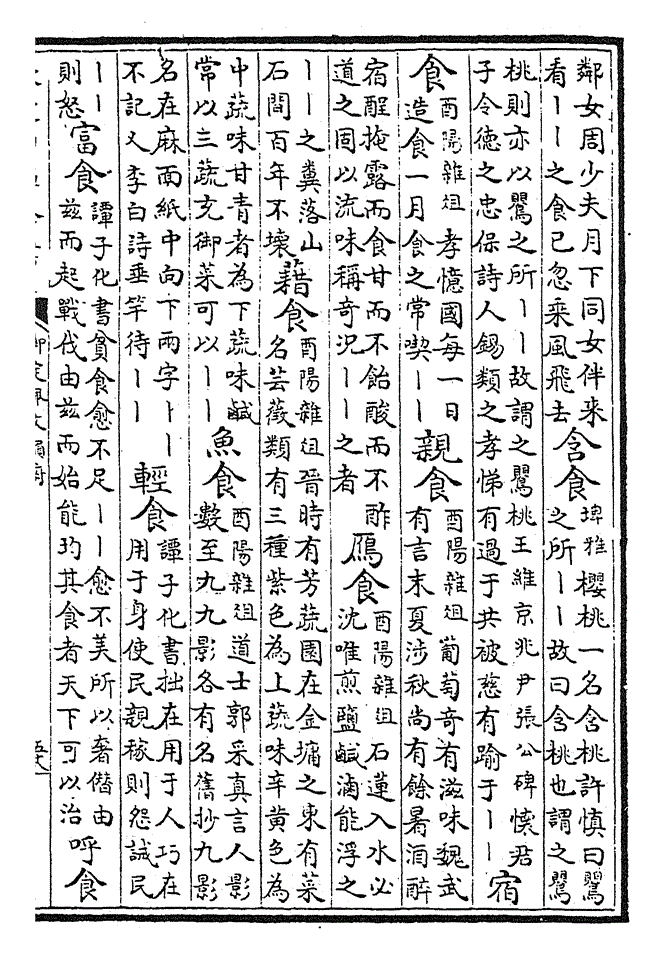 鄰女周少夫月下同女伴来
看丨丨之食已忽乘風飛去
含食
埤雅櫻桃一名含桃許慎曰鸎
之所丨丨故曰含桃也謂之鸎
桃則亦以鸎之所丨丨故謂之鸎桃王維京兆尹張公碑懐君
子令德之忠保詩人錫類之孝悌有過于共被慈有踰于丨丨
宿
食
酉陽雜俎孝憶國每一日
造食一月食之常喫丨丨
親食
酉陽雜俎葡萄奇有滋味魏武
有言末夏涉秋尚有餘暑酒醉
宿酲掩露而食甘而不飴酸而不酢
道之固以流味稱奇况丨丨之者
鴈食
酉陽雜俎石蓮入水必
沈唯煎鹽鹹滷能浮之
丨丨之糞落山
石間百年不壊
藉食
酉陽雜俎晉時有芳蔬園在金墉之東有菜
名芸薇類有三種紫色為上蔬味辛黄色為
中蔬味甘青者為下蔬味鹹
常以三蔬充御菜可以丨丨
魚食
酉陽雜俎道士郭采真言人影
數至九九影各有名舊抄九影
名在麻面紙中向下兩字丨丨
不記又李白詩垂竿待丨丨
輕食
譚子化書拙在用于人巧在
用于身使民親稼則怨誡民
丨丨
則怒
富食
譚子化書貧食愈不足丨丨愈不美所以奢僭由
兹而起戰伐由兹而始能均其食者天下可以治
呼食